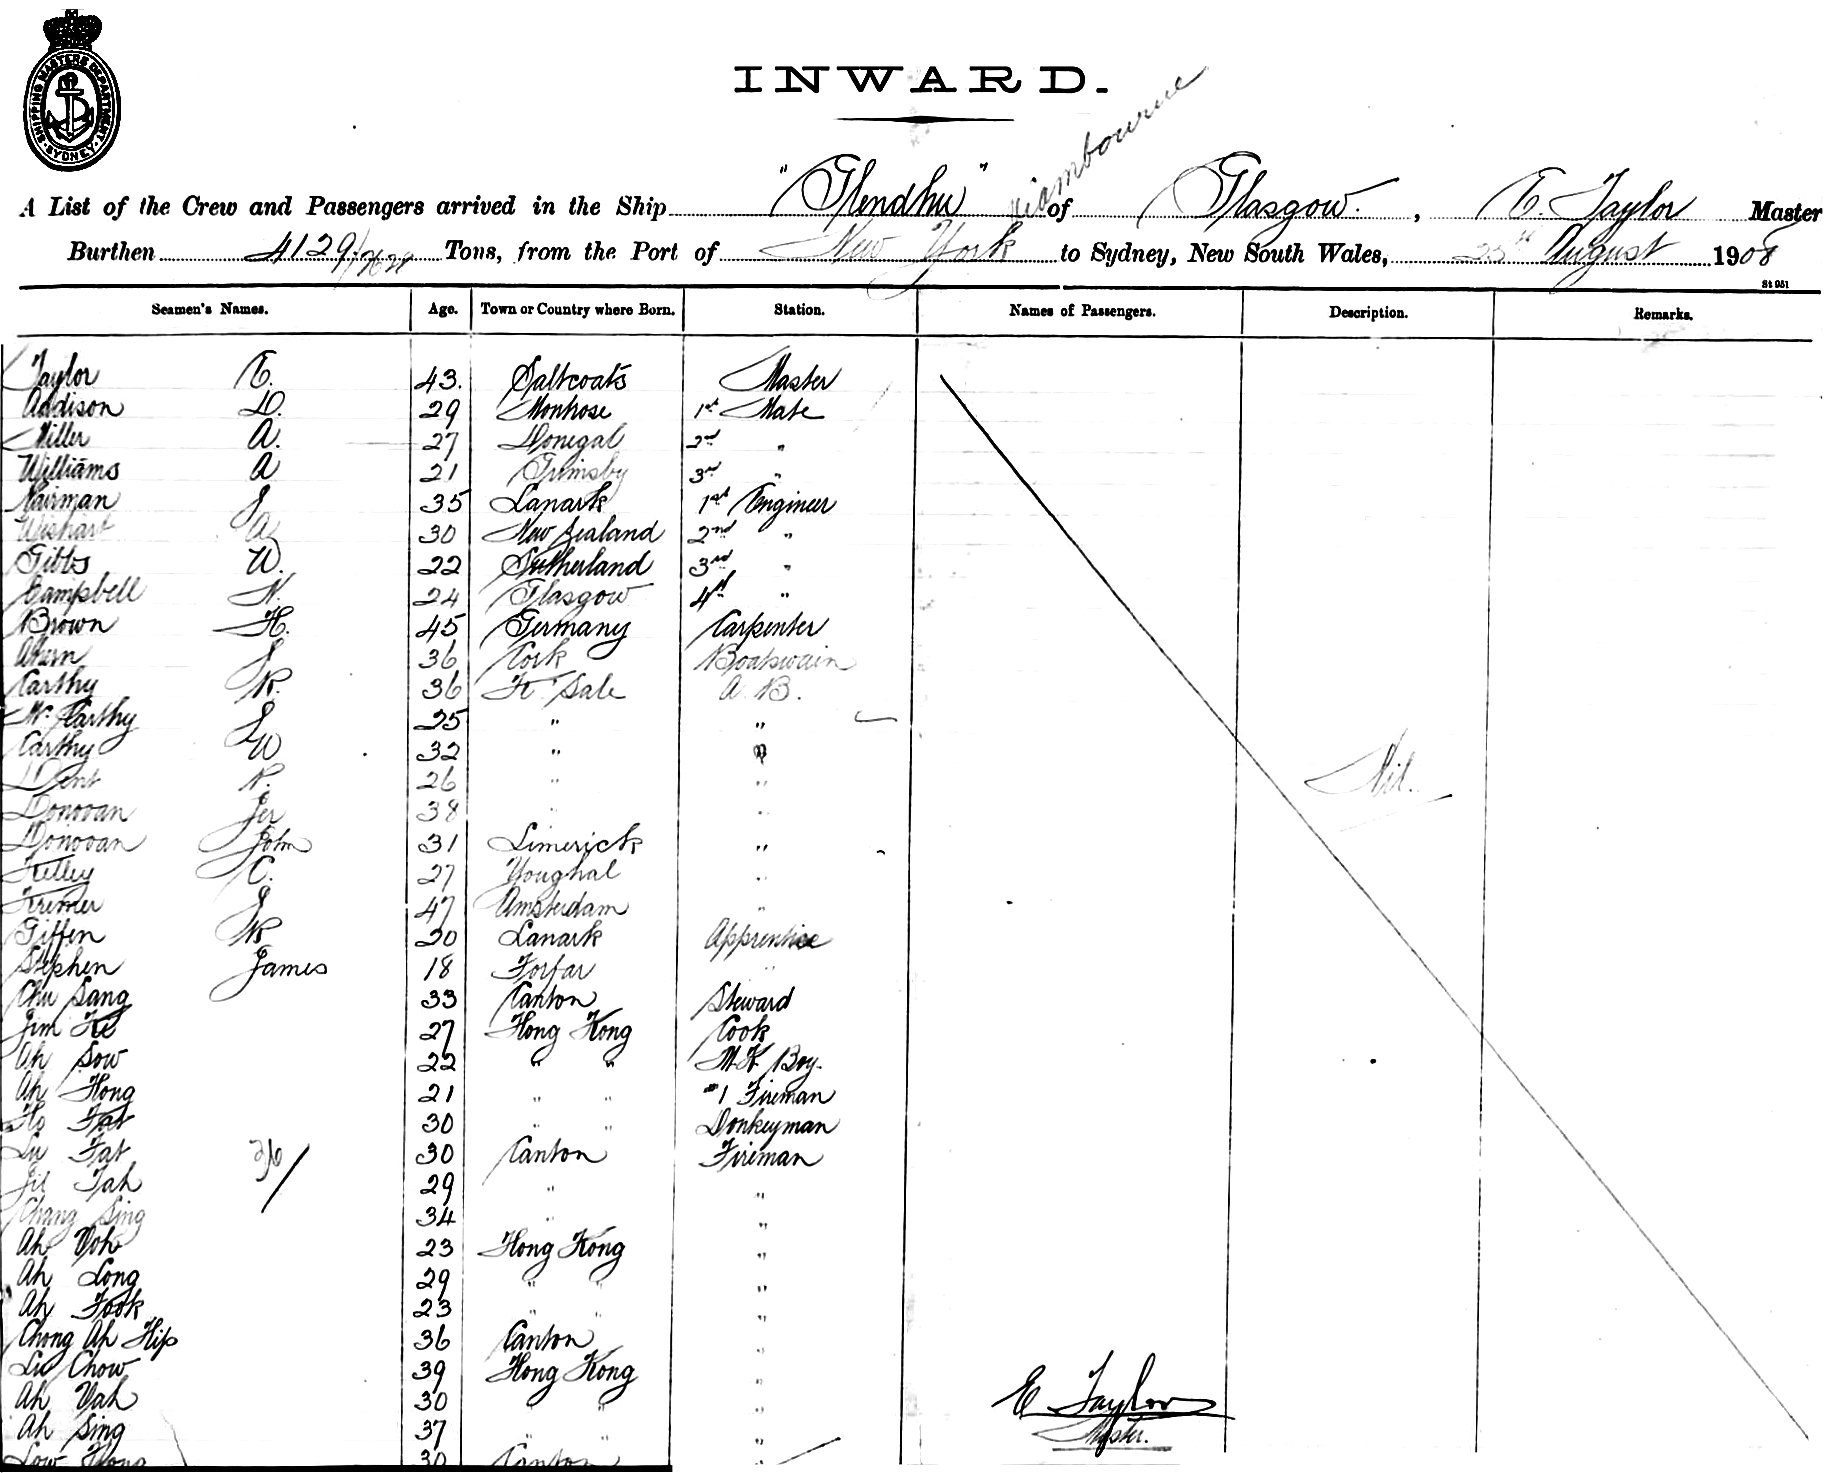 SHIPPING MASTERS DEPARTMENT SYDNEY
INWARD.
A List of the Crew and Passengers arrived in the Ship "Glendhu" of Glasgow. , E. Taylor Master
Burthen 4129/2628 Tons, from the Port of New York to Sydney, New South Wales, 25th August 1908
St 051
Seamen's Names. Age. Town or Country where Born. Station. Names of Passengers. Description. Remarks.
Taylor E. 43. Saltcoats Master
Addison D. 29 Montrose 1st Mate
Miller A. 27 Donegal 2nd "
Williams A 21 Grimsby 3rd "
Nairman J 35 Lanark 1st Engineer
Wishart A 30 New Zealand 2nd "
Gibbs W. 22 Sutherland 3rd "
Campbell N. 24 Glasgow 4th "
Brown H. 45 Germany Carpenter
Ahern J 36 Cork Boatswain
Carthy R. 36 K Sale A.B.
Mc Carthy J 25 " "
Carthy W 32 " "
Dent R. 26 " "
Donovan Jer 38 " "
Donovan John 31 Limerick "
Kelley C. 27 Youghal "
Kremer J 47 Amsterdam "
Giffen R 20 Lanark Apprentice
Stephen James 18 Forfar "
Chu Sang 33 Canton Steward
Jim Ke 27 Hong Kong Cook
Ah Sow 22 " " M.R Boy.
Ah Hong 21 " " 1 Fireman
Ho Fat 30 " " Donkeyman
Lu Fat 30 Canton Fireman
36/
Jil Tah 29 " "
Chang Sing 34 " "
Ah Yoh 23 Hong Kong "
Ah Long 29 " " "
Ah Fook 23 " " "
Chong Ah Hip 36 Canton "
Lu Chow 39 Hong Kong "
Ah Yah 30 " " "
Ah Sing 37 " " "
Low Hong 30 Canton "
Nil.
E Taylor
Master.